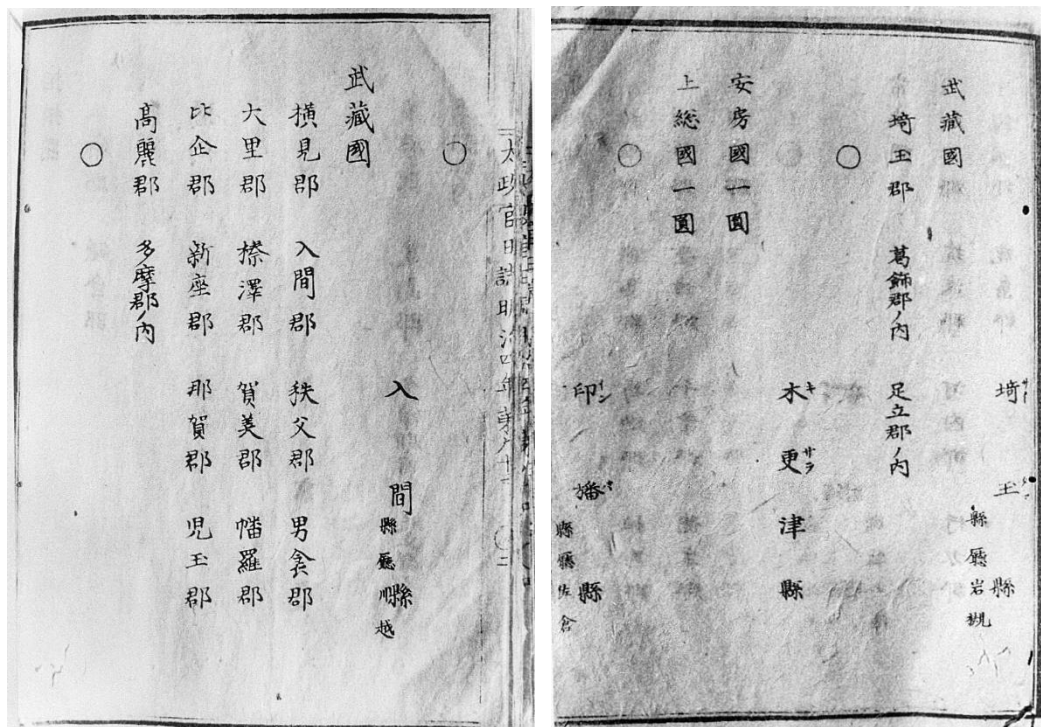 埼玉縣
縣廳岩槻
武藏國
埼玉郡 葛飾郡ノ内 足立郡ノ内
○
木更津縣
キ サラ
安房國一圓
上総國一圓
○
印旛縣
縣廳佐倉
太政官日誌明治四年第
○
入間縣
縣廳川越
武藏國
横見郡 入間郡 秩父郡 男衾郡
大里郡 榛澤郡 賀美郡 幡羅郡
比企郡 新座郡 那賀郡 児玉郡
高麗郡 多摩郡ノ内
○